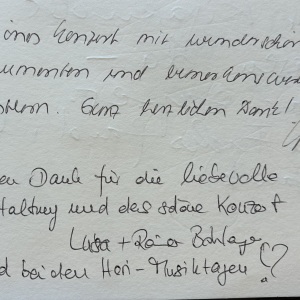 önes Konzert mit wunderschön
rumenten und bemerkenswer
stlern. Ganz herzlichen Dank!
en Dank für die liebevolle
taltung und das schöne Konzert
Luisa + Rainer
d bei den Hori-Musiktagen